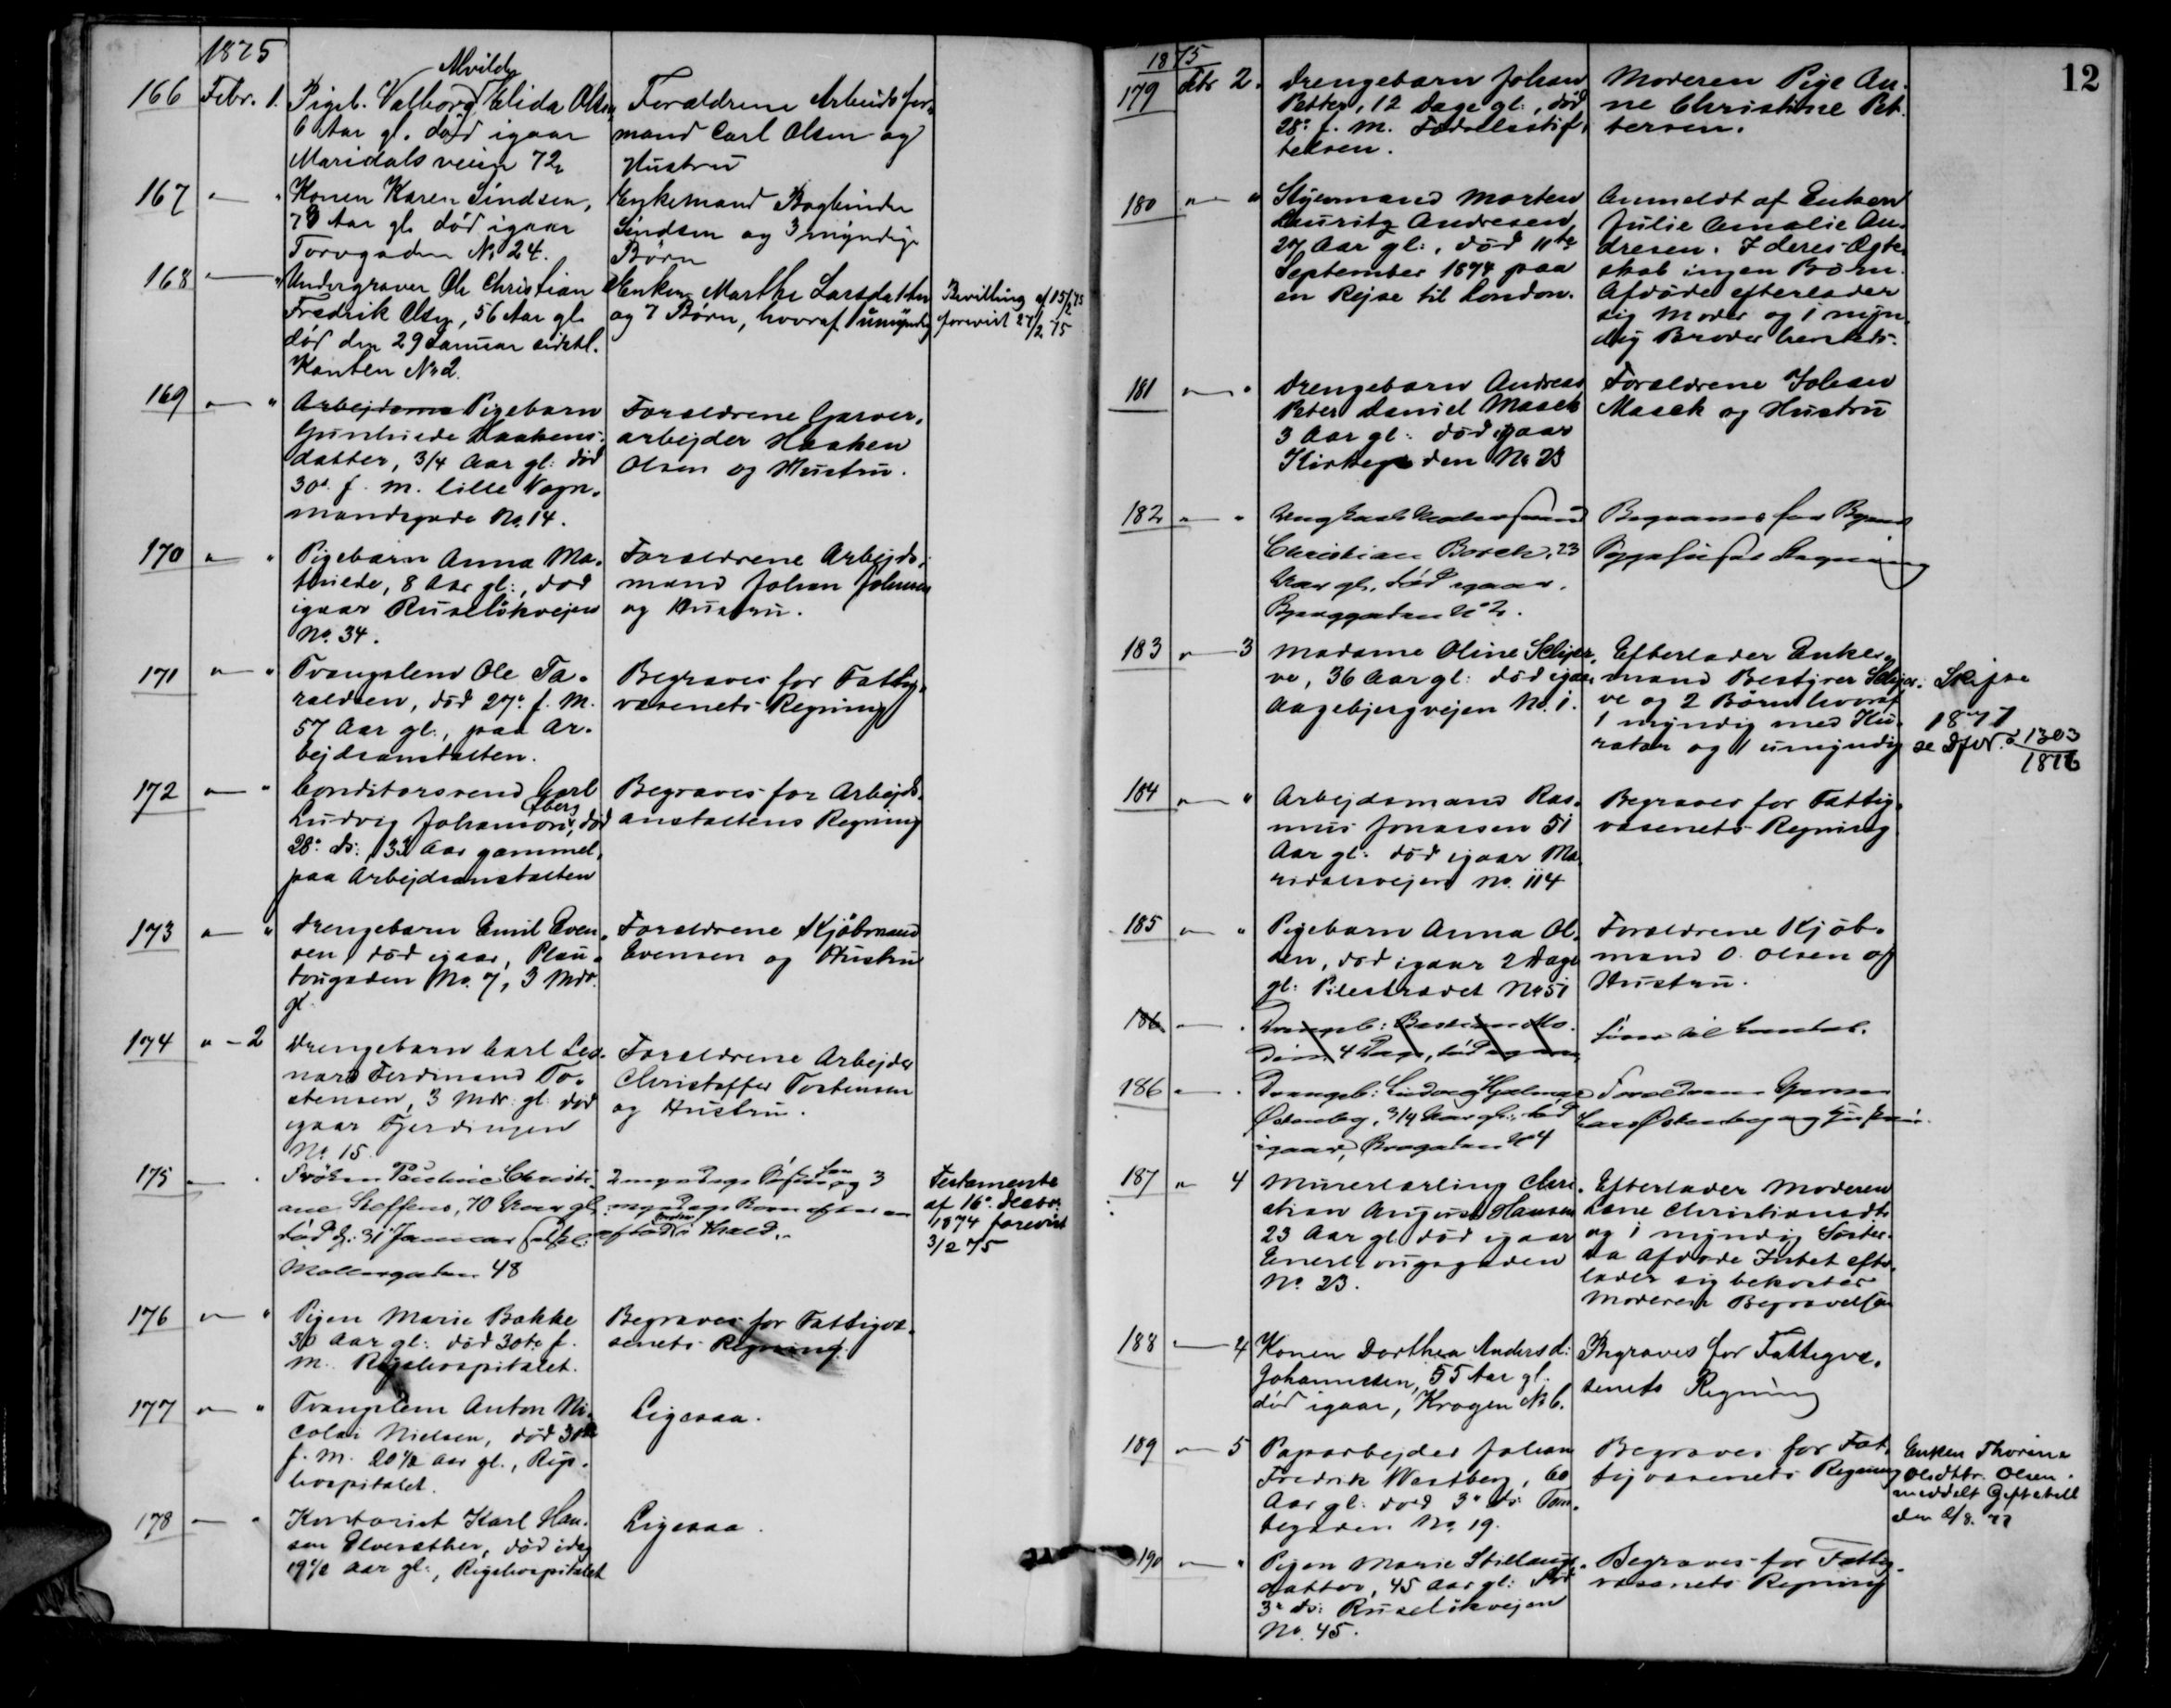 1875
166 Febr. 1. Pigeb. Valborg Alvilda Elida Olsen,
6 Aar gl. død igaar
Maridalsveien 72
Forældrene Arbeidsfor-
mand Carl Olsen og
Hustru
167 — " Konen Karen Sindsen,
78 Aar gl. død igaar
Torvgaden No 24.
Enkemand Bogbinder
Sindsen og 3 myndige
Børn
168 — " Undergraver Ole Christian
Fredrik Olsen, 56 Aar gl.
død den 29 Januar sidstl.
Kanten No 2.
Enken Marthe Larsdatter
og 7 Børn, hvoraf 1 umyndig
Bevilling af 15/2 75
forevist 27/2 75
169 " — " Arbejdsma Pigebarn
Gunhilde Haakens-
datter, 3/4 Aar gl: død
30d. f. M. lille Vogn-
mandsgade No. 14.
Forældrene Garver-
arbejder Haaken
Olsen og Hustru.
170 " — " Pigebarn Anna Ma-
thilde, 8 Aar gl:, død
igaar Ruseløkvejen
No. 34.
Forældrene Arbejds-
mand Johan Johnsen
og Hustru.
171 " — " Tvangslem Ole Ta-
raldsen, død 27d. f. M.
57 Aar gl:, paa Ar-
bejdsanstalten.
Begraves for Fattig-
væsenets Regning
172 " — " Conditorsvend Carl
Ludvig Johanson, død
28d. ds:, 33 Aar gammel,
paa Arbejdsanstalten
Begraves for Arbejds-
anstaltens Regning
173 " — " Drengebarn Emil Even-
sen, død igaar, Plau-
tougaden No. 7, 3 Mdr.
gl.
Forældrene Kjøbmand
Evensen og Hustru
174 " — 2 Drengebarn Carl Leo-
nard Ferdinand To-
stensen, 3 Mdr: gl: død
igaar Fjerdingen
No. 15.
Forældrene Arbejder
Christoffer Tostensen
og Hustru.
175 — . Frøken Pauline Christi-
ane Steffens, 70 Aar gl.
død d: 31 Januar
Møllergaden 48
2 myndige og 3
myndige Børn efter en
Testamente
af 16d. Decbr.
1874 forevist
3/2 75
176 " — " Pigen Marie Bakke
30 Aar gl: død 30te f.
M. Rigshospitalet.
Begraves for Fattigvæ-
senets Regning.
177 " — " Tvangslem Anton Ni-
colai Nielsen, død 30te
f. M. 20 1/2 Aar gl., Rigs-
hospitalet.
Ligesaa.
178 — " Kontorist Karl Han-
sen Elvesæther, død idag
19 1/2 Aar gl:, Rigshospitalet
Ligesaa.
12
1875
179 Febr 2. Drengebarn Johan
Petter, 12 Dage gl:, død
28d. f. M. Fødselsstif-
telsen.
Moderen Pige An-
ne Christine Pet-
tersen.
180 " — " Styrmand Morten
Lauritz Andresen
27 Aar gl:, død 11te
September 1874 paa
en Rejse til London.
Anmeldt af Enken
Julie Amalie An-
dresen. I deres Ægte-
skab ingen Børn.
Afdøde efterlader
sig Moder og 1 myn-
dig Broder hersteds.
181 " — " Drengebarn Andreas
Peter Daniel Masek
3 Aar gl: død igaar
Kirkegaden No 23
Forældrene Johan
Masek og Hustru
182 " — "
Christian Borch, 23
Aar gl. død igaar.
No 2.
Begraves for Byens
Sygehuses Regning
183 " — 3 Madame Oline Schjer-
ve, 36 Aar gl: død igaar
Aagebjergvejen No. 1.
Efterlader Enke-
mand Bestyrer Schjer-
ve og 2 Børn hvoraf
1 myndig med Ku-
rator og 1 umyndig
Skifte
1877
se 1303
1876
184 " — " Arbejdsmand Ras-
mus Jonassen 51
Aar gl: død igaar Ma-
ridalsvejen No. 114
Begraves for Fattig-
væsenets Regning
185 " — " Pigebarn Anna Ol-
sen, død igaar 2 Dage
gl: Pilestrædet No 51
Forældrene Kjøb-
mand O. Olsen og
Hustru.
186 — . Drengeb:
4 Dage, død igaar
186 " — . Drengeb: Ludvig Hjalmar
Østenberg, 3/4 Aar gl:, død
igaar, No 4
Forældrene
Lars Østenberg og Hustru.
187 " 4 Murerlærling Chri-
stian August Hansen
23 Aar gl død igaar
Enerhougsgaden
No. 23.
Efterlader Moderen
Lene Christiansdt
og 1 myndig Søster.
Da Afdøde Intet efter-
lader sig bekoster
Moderen Begravelsen
188 — 4 Konen Dorthea Andersd:
Johannesen, 55 Aar gl.
død igaar, Krogen No 6.
Begraves for Fattigvæ-
senets Regning
189 " — 5 Paparbejder Johan
Fredrik Westberg, 60
Aar gl: død 3d. ds: Tom-
tegaden No. 19.
Begraves for Fat-
tigvæsenets Regning
Enken Thorine
Olsdttr. Olsen
meddelt Gifteatt
den 2/8. 77
190 " — " Pigen Marie Stillaugs-
datter, 45 Aar gl: død
3d. ds: Ruseløkvejen
No. 45.
Begraves for Fattig-
væsenets Regning